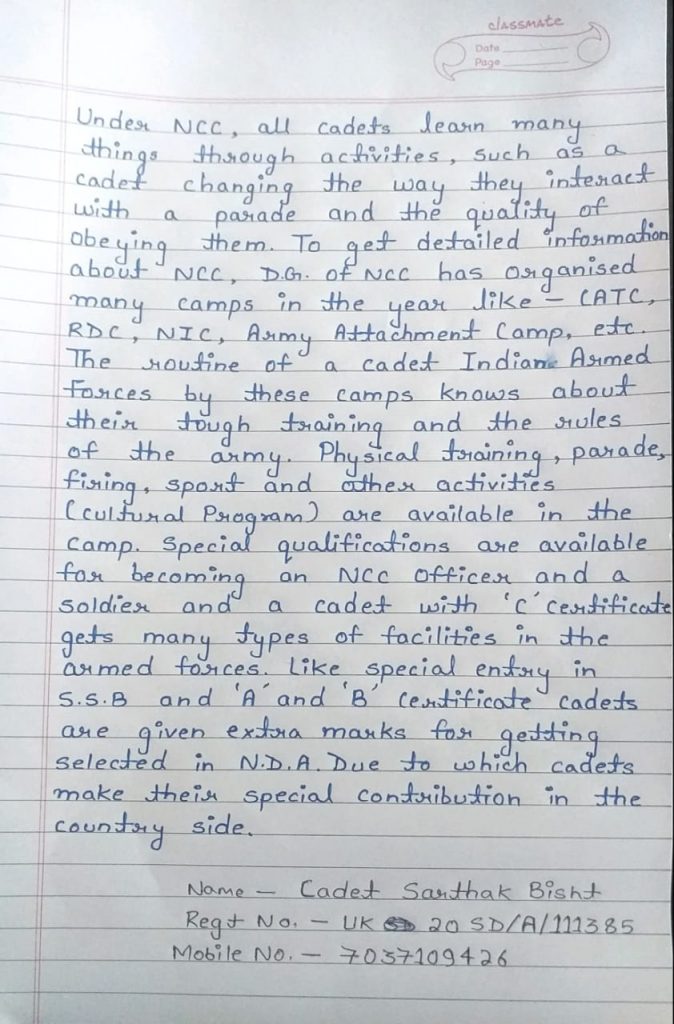 classmate
Date
Page
Under NCC, all cadets learn many
things through activities, such as a
cadet changing the way they interact
with a parade and the quality of
obeying them. To get detailed information
about NCC, D.G. of NCC has organised
many camps in the year like - CATC,
RDC, NIC, Army Attachment Camp, etc.
The routine of a cadet Indian Armed
Forces by these camps knows about
their tough training and the rules
of the army. Physical training, parade,
firing, sport and other activities
(cultural Program) are available in the
camp. Special qualifications are available
for becoming an NCC officer and a
soldier and a cadet with 'C' certificate
gets many types of facilities in the
armed forces. Like special entry in
S.S.B and 'A' and 'B' certificate cadets
are given extra marks for getting
selected in N.D.A. Due to which cadets
make their special contribution in the
country side.
Name - Cadet Sarthak Bisht
Regt No. - UK 20 SD/A/111385
Mobile No. - 7037109426